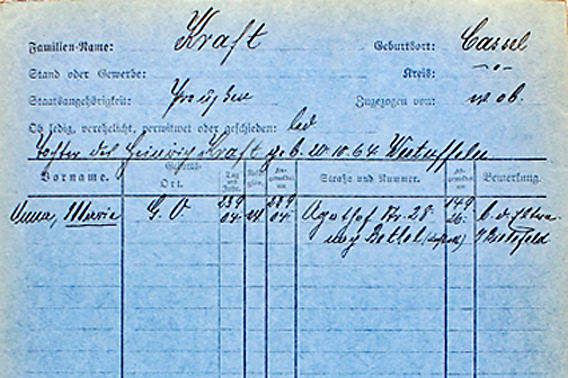 Familien-Name: Kraft Geburtsort: Cassel
Stand oder Gewerbe: Kreis: -"-
Staatsangehörigkeit: Preußen Zugezogen von: w. ob.
Ob ledig, verehelicht, verwitwet oder geschieden: led
Tochter des Heinrich Kraft geb. 20.10.64 Westuffeln
Vorname. Geburts- Ort. Tag und Jahr. Reli- gion. An- gemeldet am Straße und Nummer. Ab- gemeldet am Bemerkung.
Anna, Marie G. O. 23 9 04. 28 9 04. Agathof Str. 28 14 9 26. b. d. Eltern
nach Bethel Bielefeld